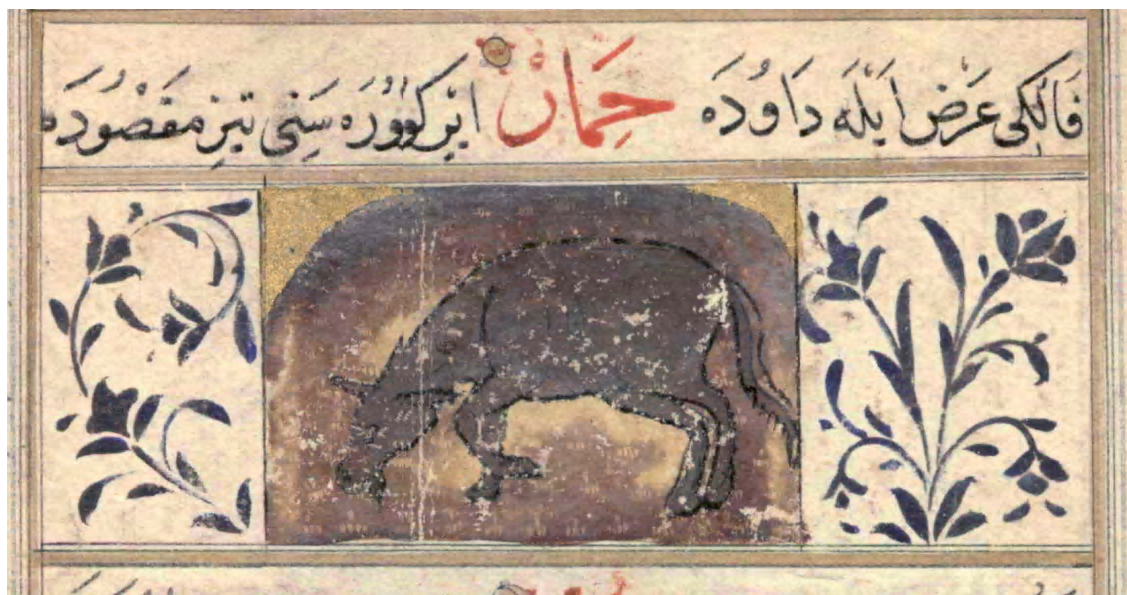 فَالِكِى عَرْض اَيْلَه دَاوُدَه حِمَارْ ايرِكوُرَه سَنِى تيزِ مَقْصُودَه